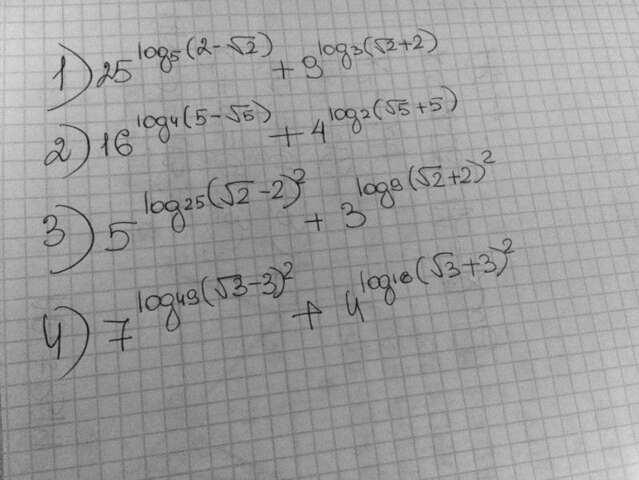 1) 25^log₅(2-√2) + 9^log₃(√2+2)
2) 16^log₄(5-√5) + 4^log₂(√5+5)
3) 5^log₂₅(√2-2)² + 3^log₉(√2+2)²
4) 7^log₄₉(√3-3)² + 4^log₁₆(√3+3)²